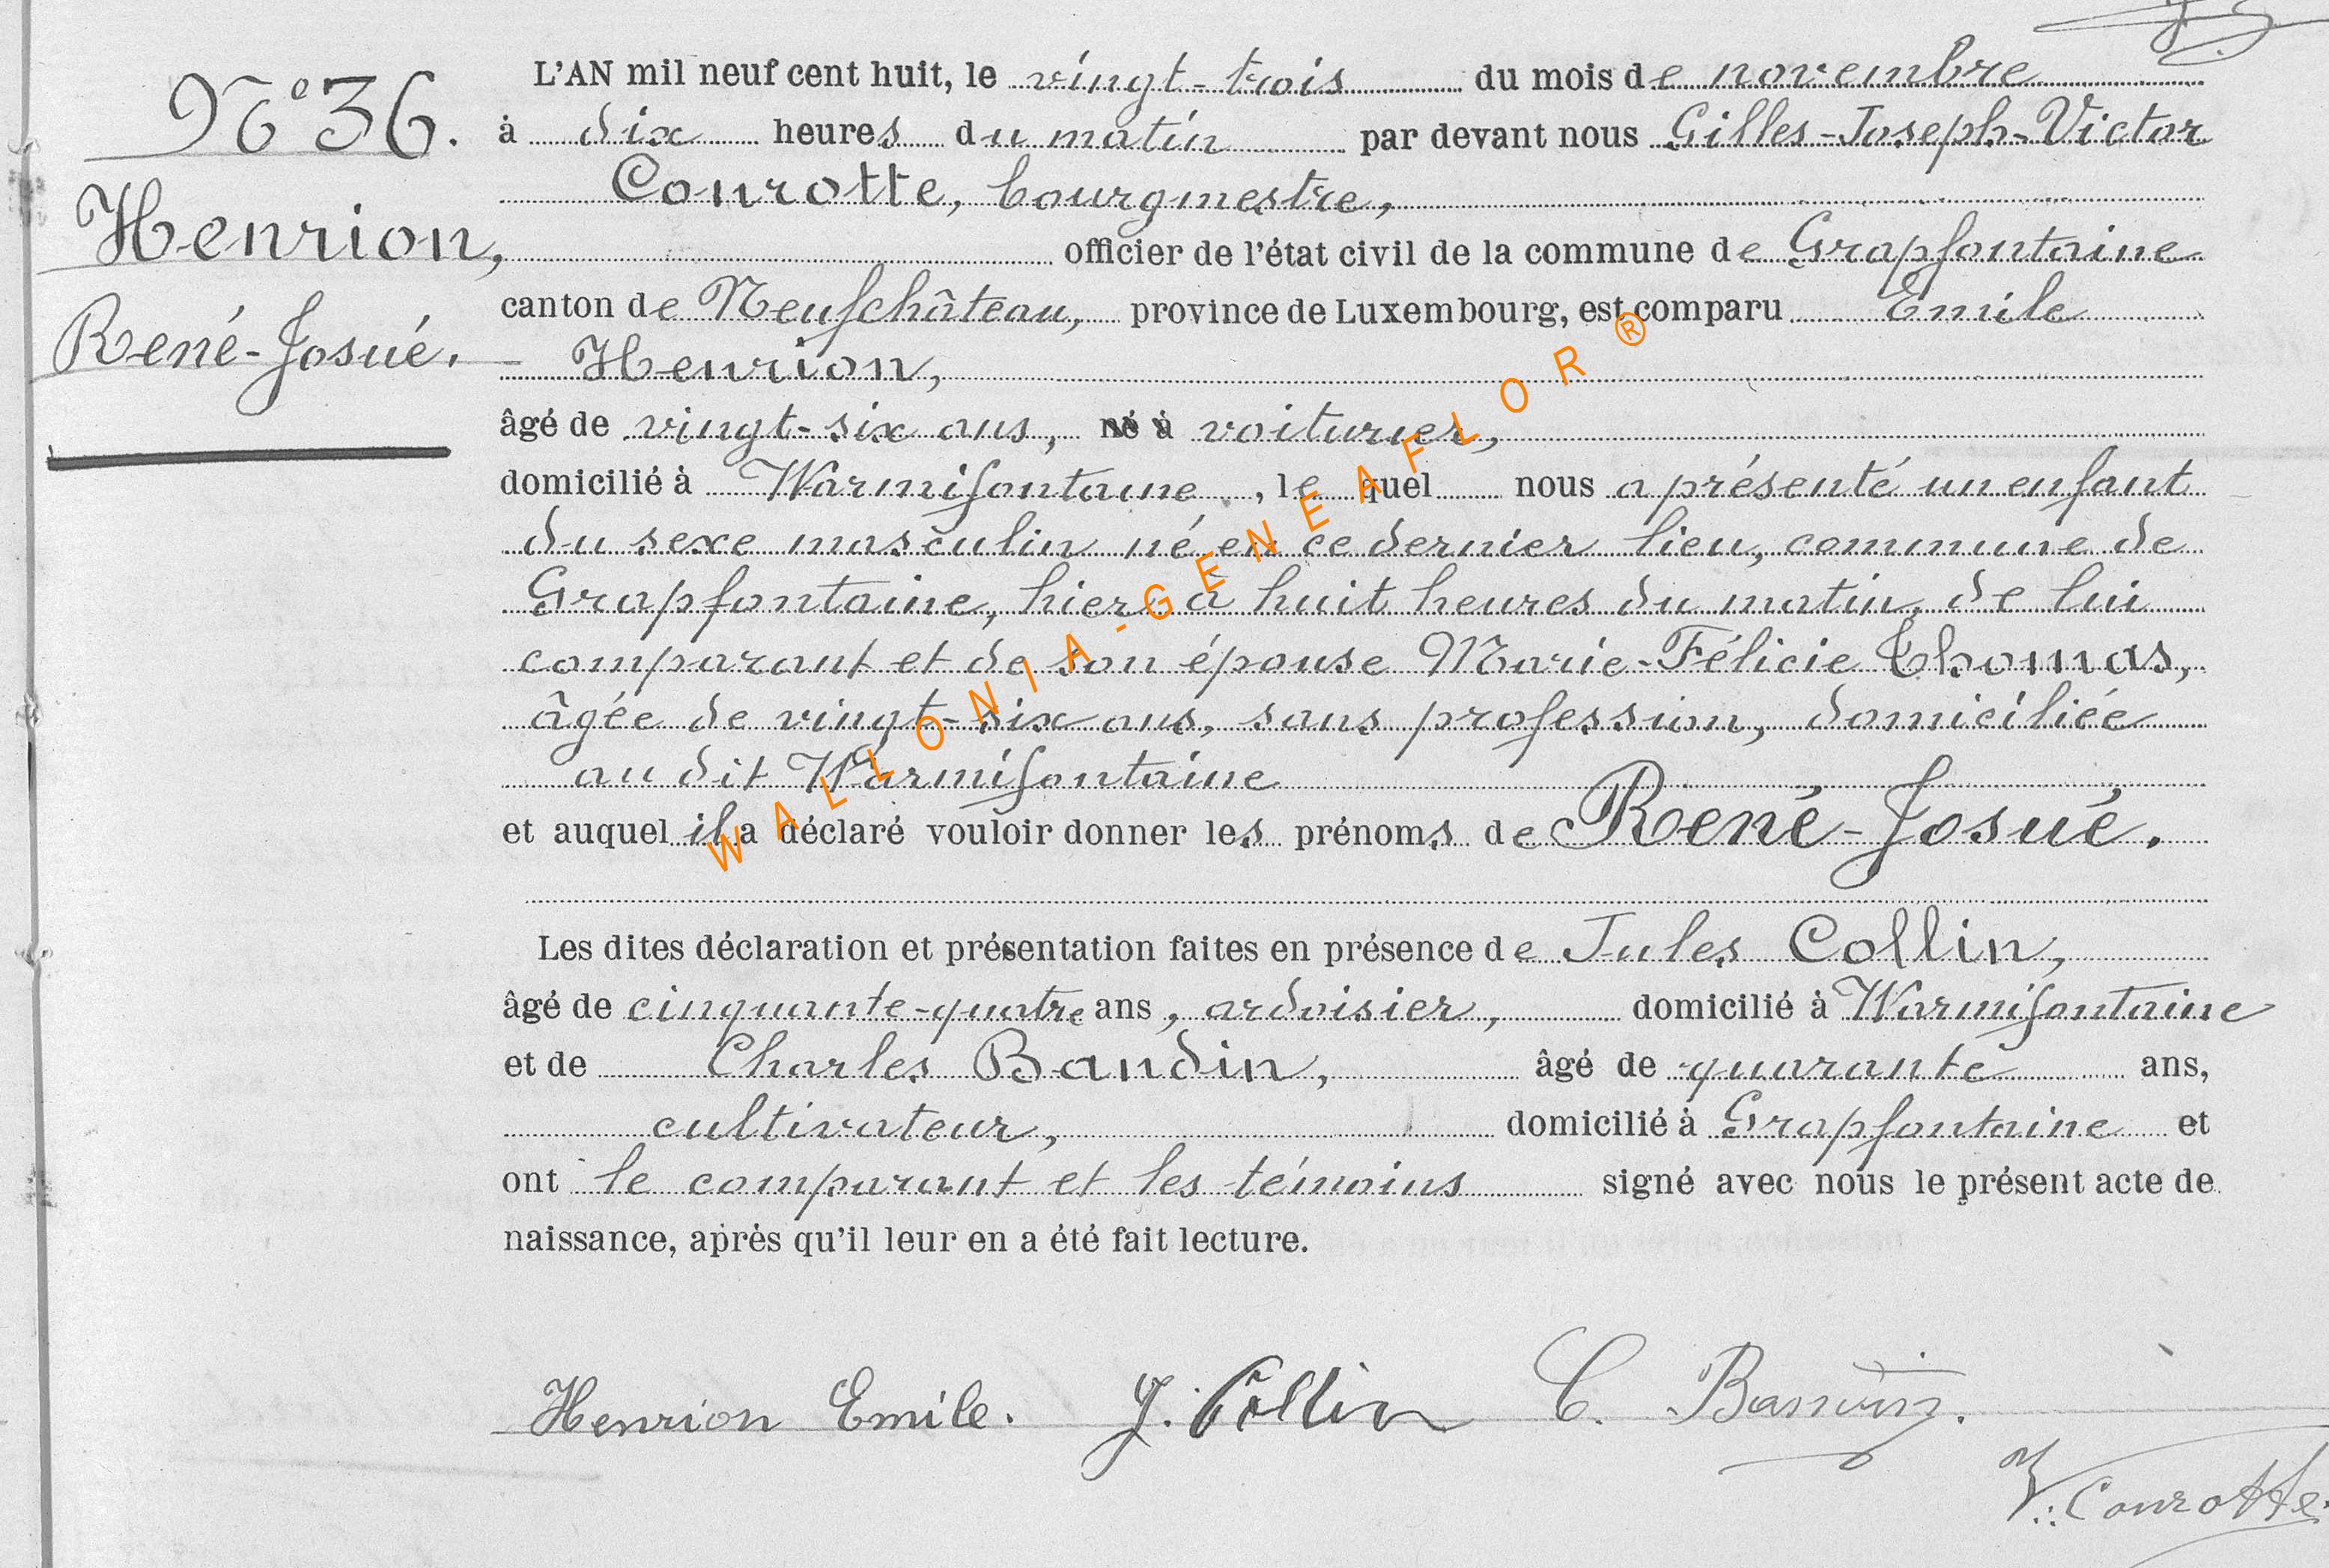 N° 36.
Henrion,
René-Josué.
L'AN mil neuf cent huit, le vingt-trois du mois de novembre
à dix heures du matin par devant nous Gilles-Joseph-Victor
Conrotte, bourgmestre,
officier de l'état civil de la commune de Grapfontaine
canton de Neufchâteau, province de Luxembourg, est comparu Emile
Henrion,
âgé de vingt-six ans, né à voiturier,
domicilié à Warmifontaine, le quel nous a présenté un enfant
du sexe masculin né en ce dernier lieu, commune de
Grapfontaine, hier à huit heures du matin, de lui
comparant et de son épouse Marie-Félicie Thomas,
âgée de vingt-six ans, sans profession, domiciliée
au dit Warmifontaine
et auquel il a déclaré vouloir donner les prénoms de René-Josué.
Les dites déclaration et présentation faites en présence de Jules Collin,
âgé de cinquante-quatre ans, ardoisier, domicilié à Warmifontaine
et de Charles Bandin, âgé de quarante ans,
cultivateur, domicilié à Grapfontaine et
ont le comparant et les témoins signé avec nous le présent acte de
naissance, après qu'il leur en a été fait lecture.
Henrion Emile. J. Collin C.
V. Conrotte.
WALLONIA-GENEAFLOR®